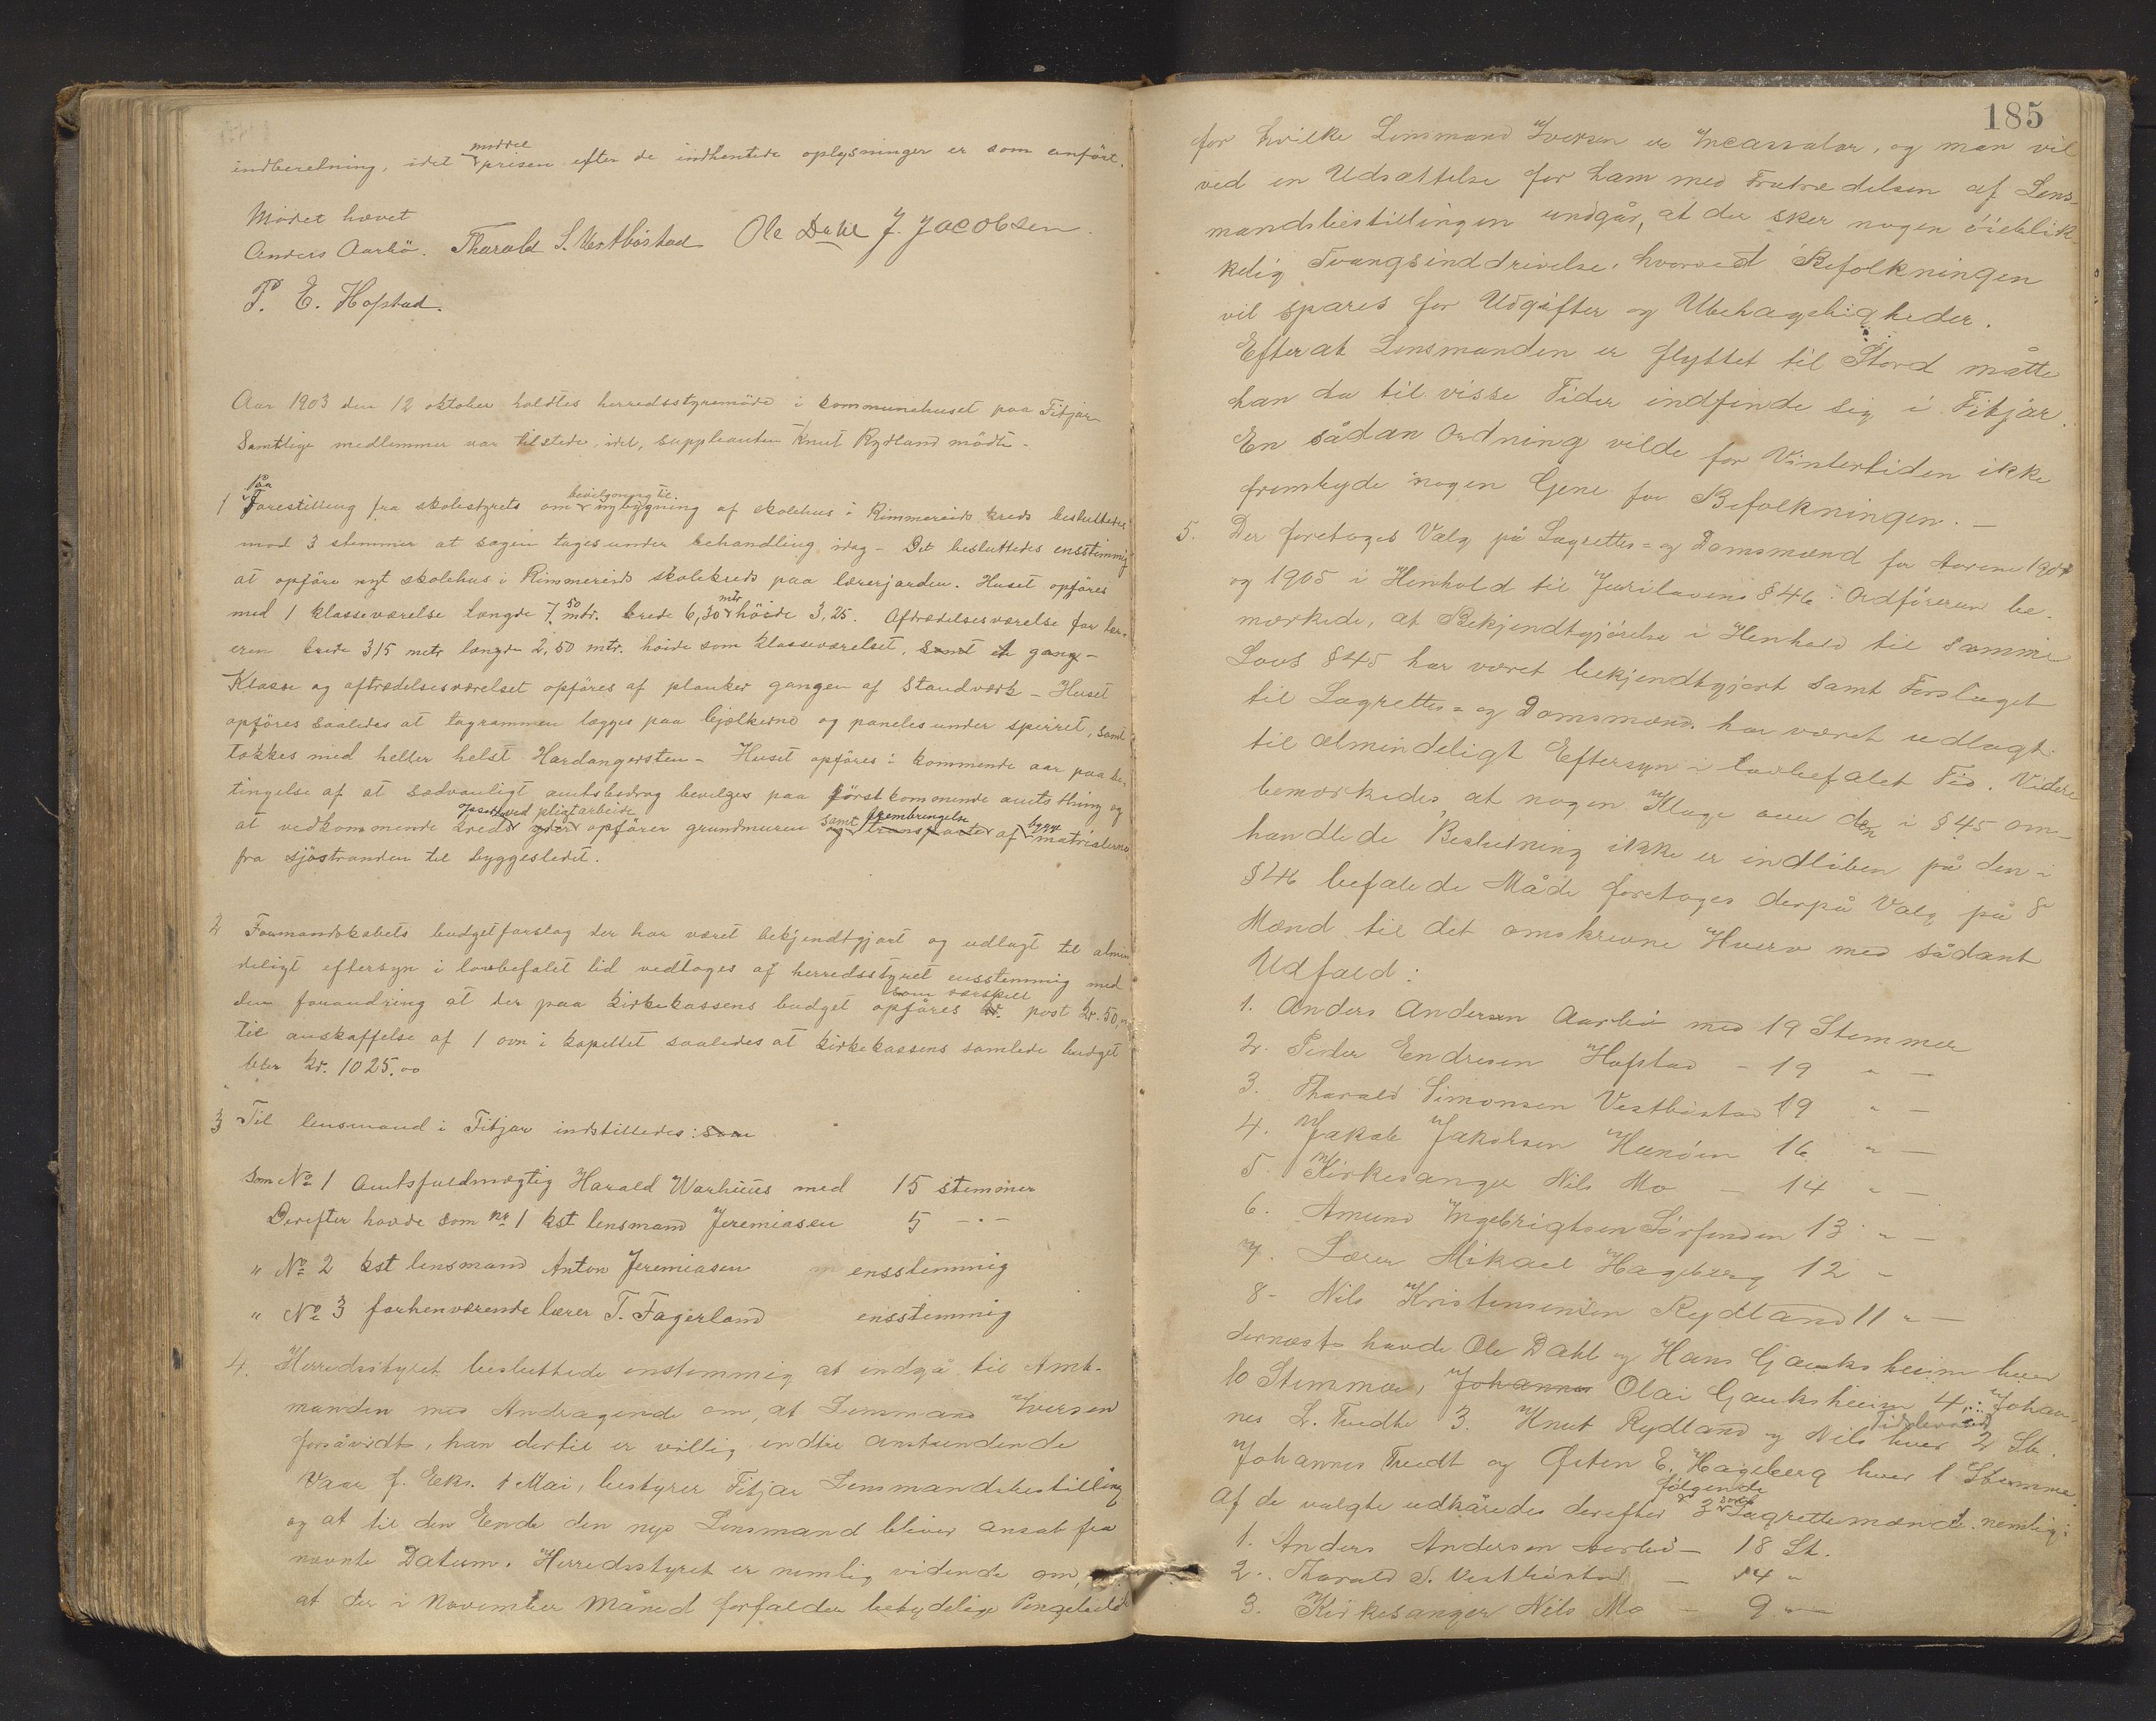 indberetning, idet middel prisen efter de indhentede oplysninger er som anført.
Mödet hævet
Anders Aarbö. Tharald S. Vestböstad Ole Dahl J. Jacobsen.
P. E. Hofstad.
Aar 1903 den 12 oktober holdtes herredsstyremöde i kommunehuset paa Fitjar
Samtlige medlemmer var tilstede, idet, suppleanten Knut Rydland mödte.
1 Paa Forestilling fra skolestyrets om bevilgning til nybygning af skolehus i Rimmereids kreds besluttedes
mod 3 stemmer at sagen tages under behandling idag - Det besluttedes ensstemmig
at opføre nyt skolehus i Rimmereids skolekreds paa lærerjorden. Huset opføres
med 1 klasseværelse længde 7,50 mtr. brede 6,30 mtr høide 3,25. Aftrædelsesværelse for lær-
eren brede 3,15 metr længde 2,50 mtr. høide som klasseværelset, samt et gang -
Klasse og aftrædelsesværelset opføres af planker gangen af Standværk - Huset
opføres saaledes at tagrammen lægges paa bjælkerne og paneles under sperret, samt
tækkes med heller helst Hardangersten - Huset opføres i kommende aar paa be-
tingelse af at sædvanligt amtsbidrag bevilges paa förstkommende amtsthing og
at vedkommende kreds ved pligtarbeide opfører grundmuren samt frembringelse af bygge matrialerne
fra sjöstranden til byggestedet.
2 Formandskabets budgetforslag der har været bekjendtgjort og udlagt til almin
deligt eftersyn i lovbefalet tid vedtoges af herredsstyret ensstemmig med
den forandring at der paa kirkekassens budget opføres som særskilt post kr. 50,00
til anskaffelse af 1 ovn i kapellet saaledes at kirkekassens samlede budget
bler kr. 1025.00
3 Til lensmand i Fitjar indstilledes: som
Som No 1 Amtsfuldmægtig Harald Warhuus med 15 stemmer
Derefter havde som nr 1 kst lensmand Jeremiasen 5 - " -
" No 2 kst lensmand Anton Jeremiasen ensstemmig
" No 3 forhenværende lærer T. Fagerland ensstemmig
4. Herredsstyret besluttede enstemmig at indgå til Amt-
manden med Andragende om, at Lensmand Iversen
forsåvidt, han dertil er villig, indtil anstundende
Vaar f. Eks. 1 Mai, bestyrer Fitjar Lensmandsbestilling
og at til den Ende den nye Lensmand bliver ansat fra
nævnte Datum. Herredsstyret er nemlig vidende om,
at der i November Måned forfalder betydelige Pengebeløb
185
for hvilke Lensmand Iversen er Incassator, og man vil
ved en Udsættelse for ham med Fratrædelsen af Lens-
mandsbestillingen undgår, at der sker nogen öieblik-
kelig Tvangsinddrivelse, hvorved Befolkningen
vil spares for Udgifter og Ubehageligheder.
Efterat Lensmanden er flyttet til Stord måtte
han da til visse Tider indfinde sig i Fitjar.
En sådan Ordning vilde for Vintertiden ikke
frembyde nogen Gene for Befolkningen. -
5. Der foretoges Valg på Lagrettes- og Domsmænd for Aarene 1904
og 1905 i Henhold til Jurilovens § 46. Ordföreren be-
mærkede, at Bekjendtgjörelse i Henhold til samme
Lovs § 45 har været bekjendtgjort samt Forslaget
til Lagrettes- og Domsmænd har været udlagt
til almindeligt Eftersyn i lovbefalet Tid. Videre
bemærkedes, at nogen Klage over den i § 45 om-
handlede Beslutning ikke er indløben på den i
§ 46 befalede Måde foretoges derpå Valg på 8
Mænd til det omskrevne Hverv med sådant
Udfald:
1. Anders Andersen Aarbö med 19 Stemmer
2. Peder Endresen Hofstad - 19 " -
3. Tharald Simonsen Vestböstad 19 " -
4. Jakob Jakobsen Hanöen 16 " -
5. Kirkesanger Nils Mo - 14 " -
6. Amund Ingebrigtsen Sörfonden 13 " -
7. Lærer Mikael Hageberg 12 -
8 - Nils Kristensensen Rydland 11 " -
dernæst havde Ole Dahl og Hans Gauksheim hver
10 Stemmer, Johannes Olai Gauksheim 4, Johan-
nes L. Tvedte 3. Knut Rydland og Nils hver 2 St.
Johannes Tvedt og Østen E. Hageberg hver 1 Stemme.
Af de valgte udkåredes derefter følgende 3 som Lagrettemænd. nemlig:
1. Anders Andersen Aarbö - 18 St.
2. Tharald S. Vestböstad - 14 "
3. Kirkesanger Nils Mo - 9 " -